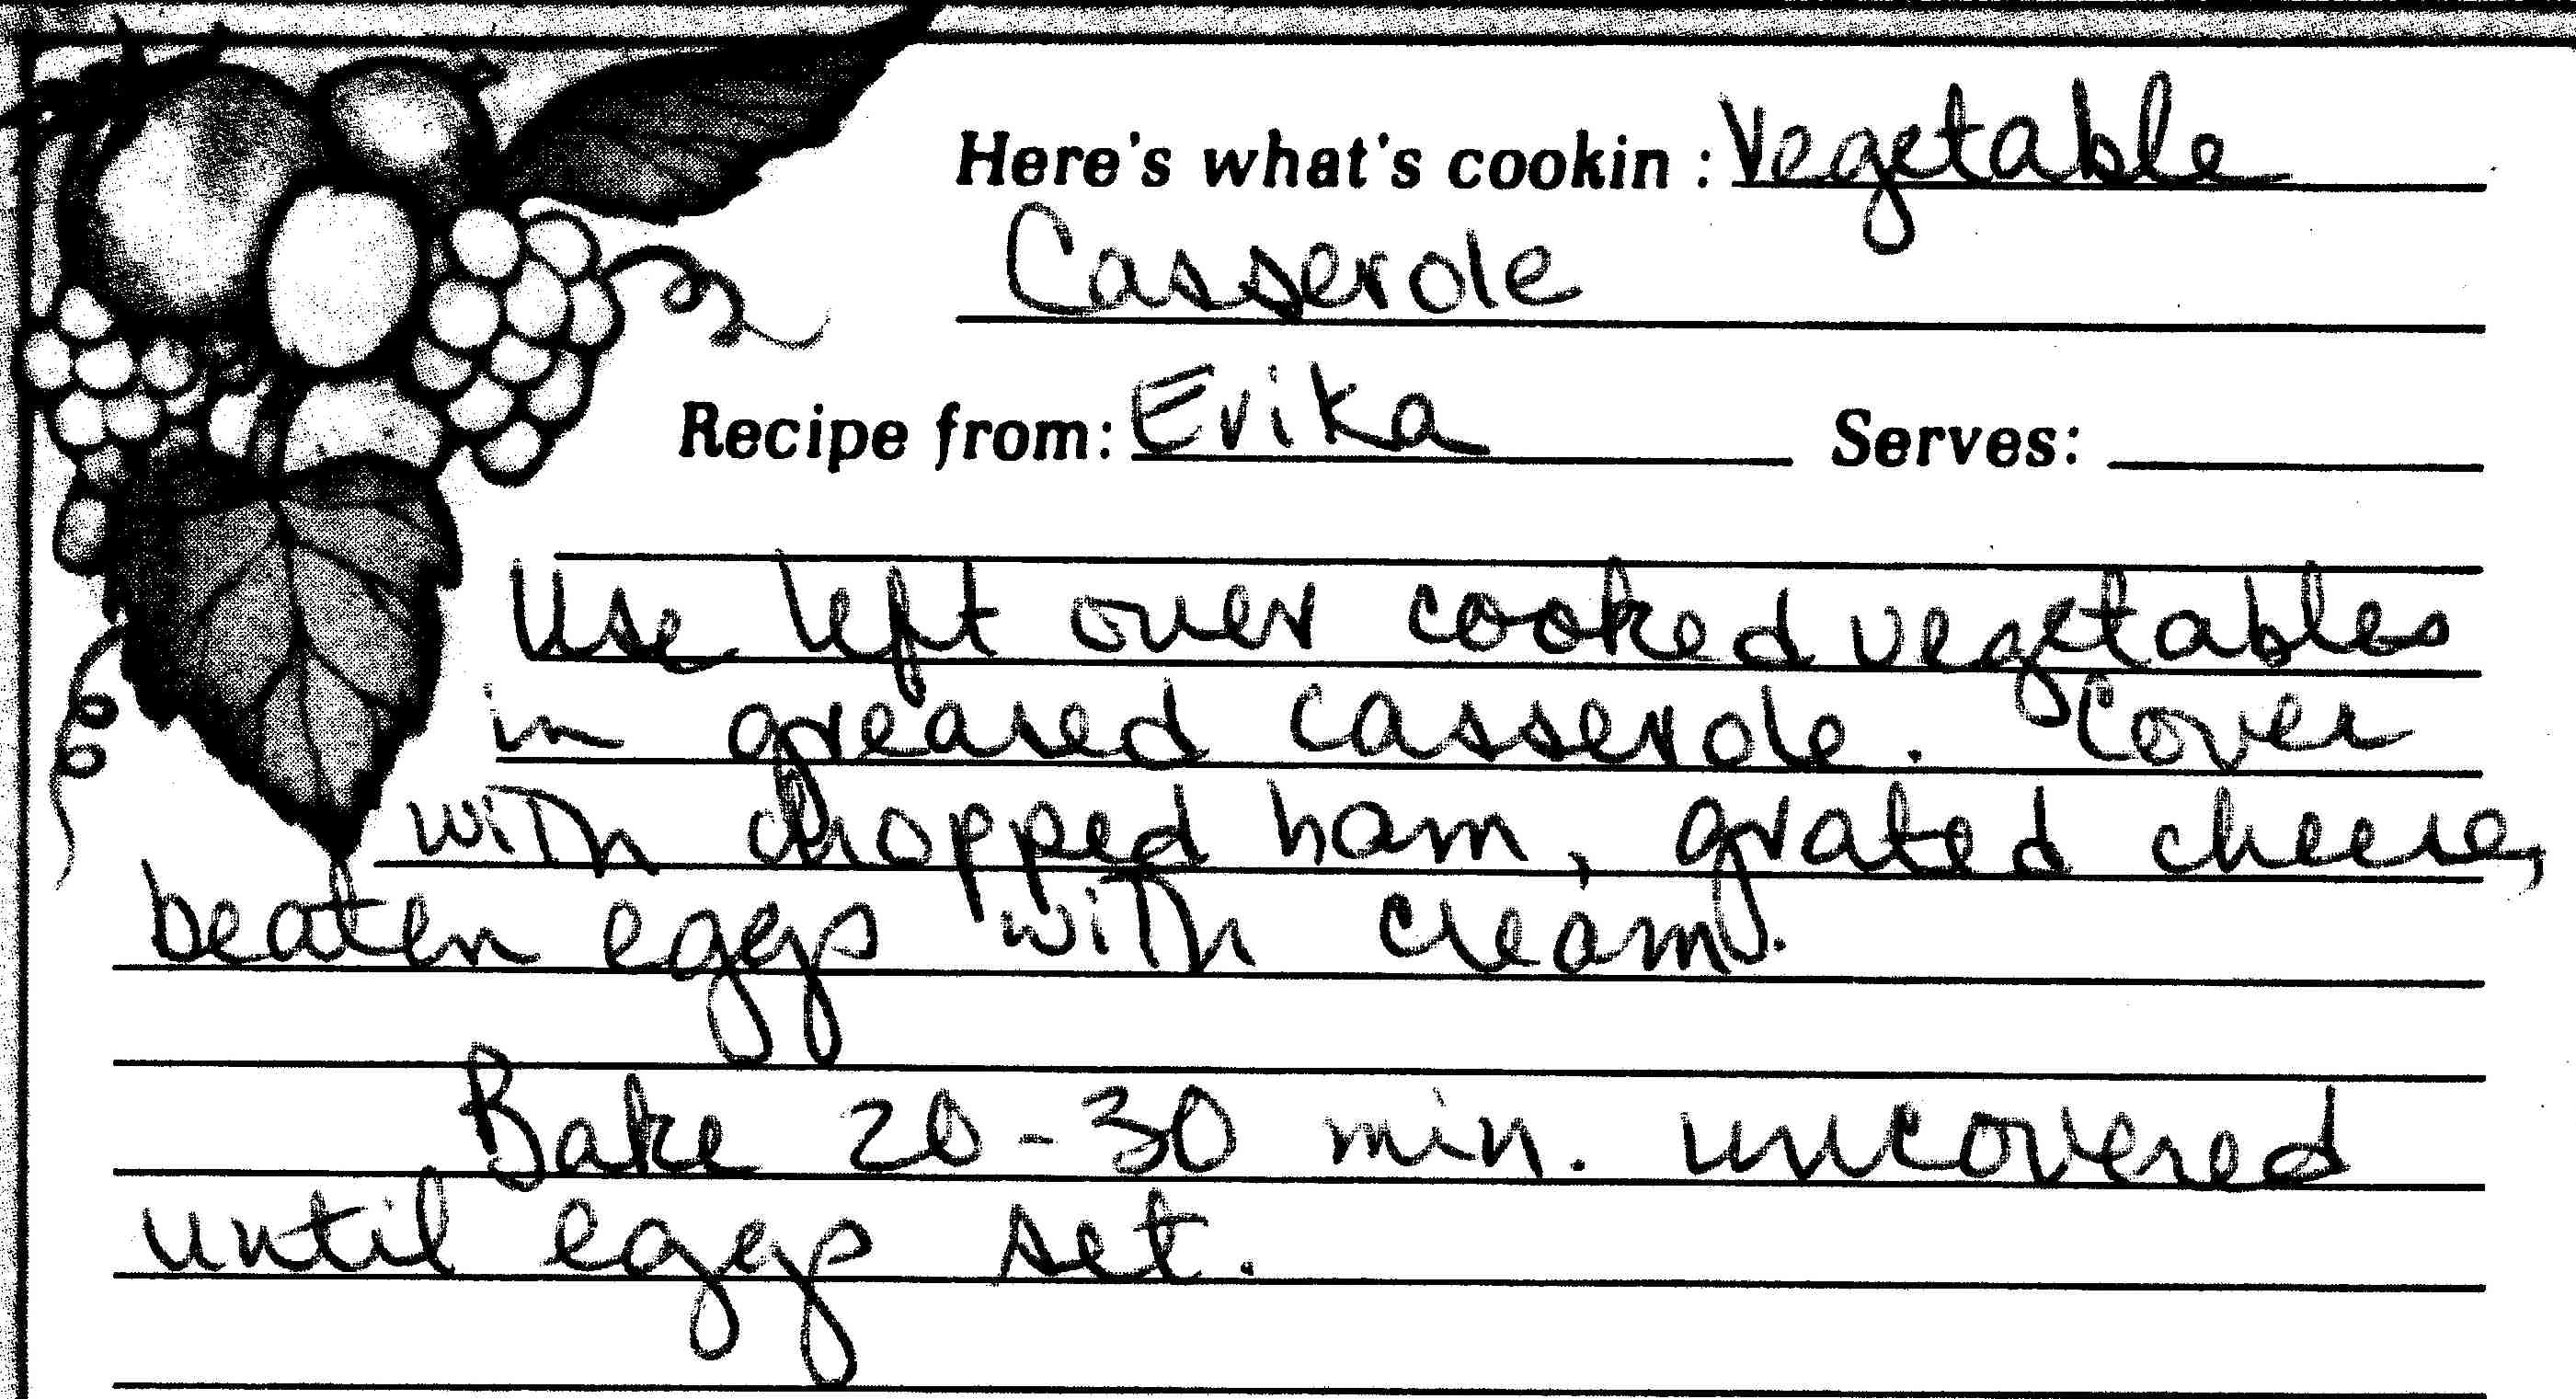 Here's what's cookin : Vegetable
Casserole
Recipe from: Erika Serves:
Use left over cooked vegetables
in greased casserole. Cover
with chopped ham, grated cheese,
beaten eggs with cream.
Bake 20-30 min. uncovered
until eggs set.